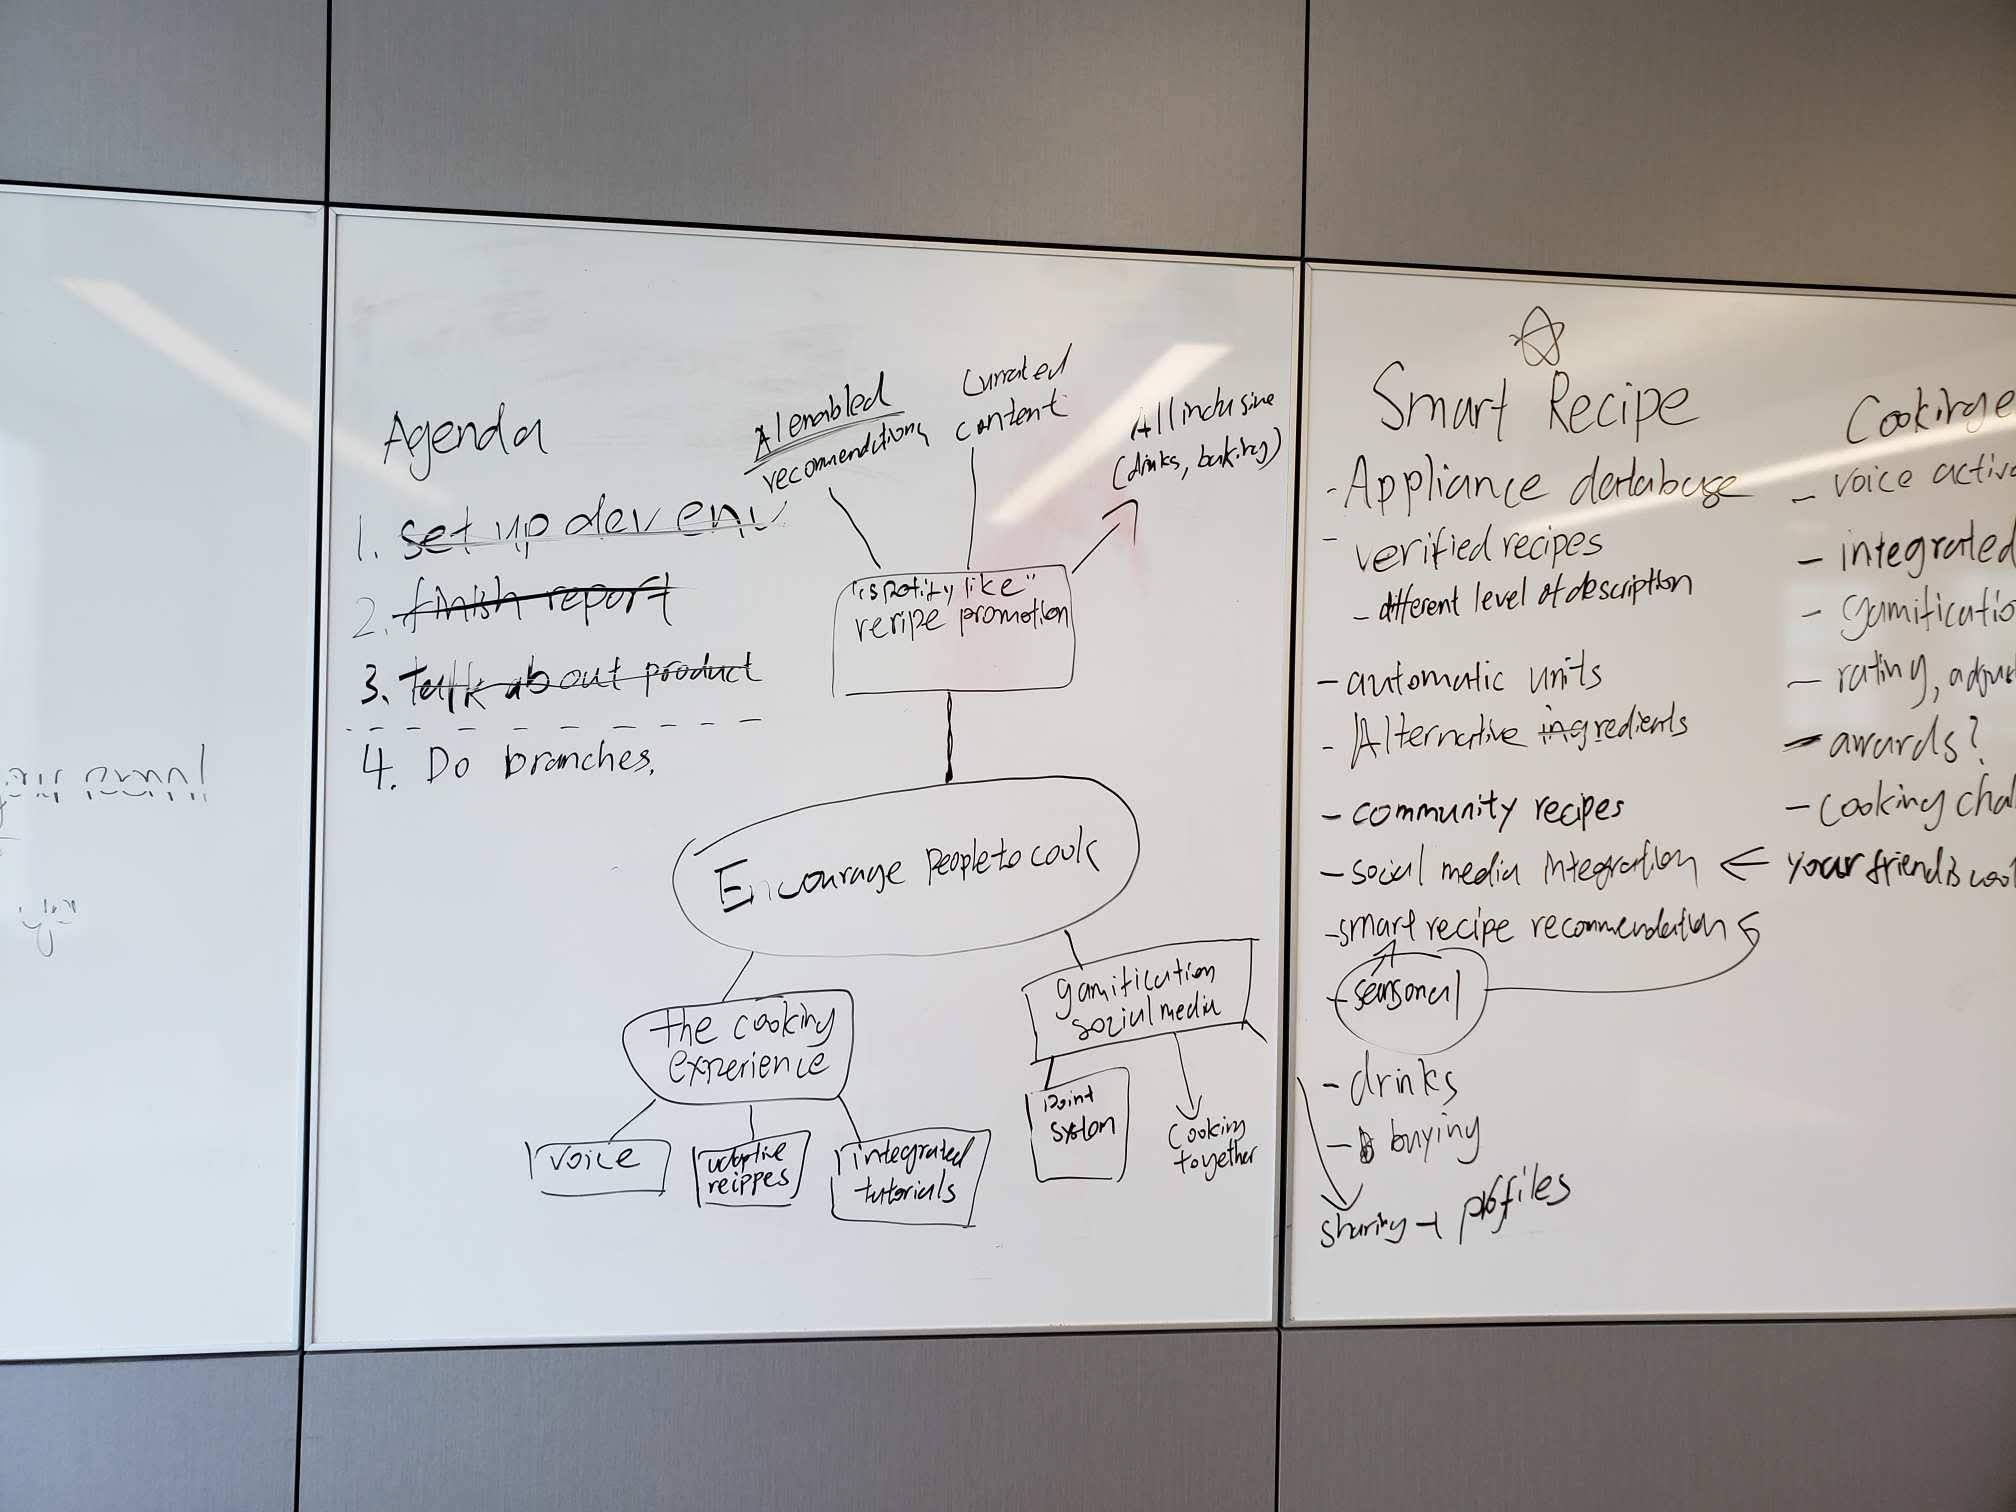 Agenda
1. set up dev env
2. finish report
3. talk about product
4. Do branches.
AI enabled
recommendations
Currated
content
All inclusive
(drinks, baking)
"spotify like"
reripe promotion
Encourage people to cook
the cooking
experience
voice
adaptive
reippes
integrated
tutorials
gamification
social media
Point
system
Cooking
together
Smart Recipe
- Appliance database
- verified recipes
- different level of description
- automatic units
- Alternative ingredients
- community recipes
- social media integration
- smart recipe recommendations
- seasonal
- drinks
- buying
sharing → profiles
Cooking e
- voice activ
- integrated
- gamificatio
- rating, adjus
- awards?
- cooking chal
your friend is